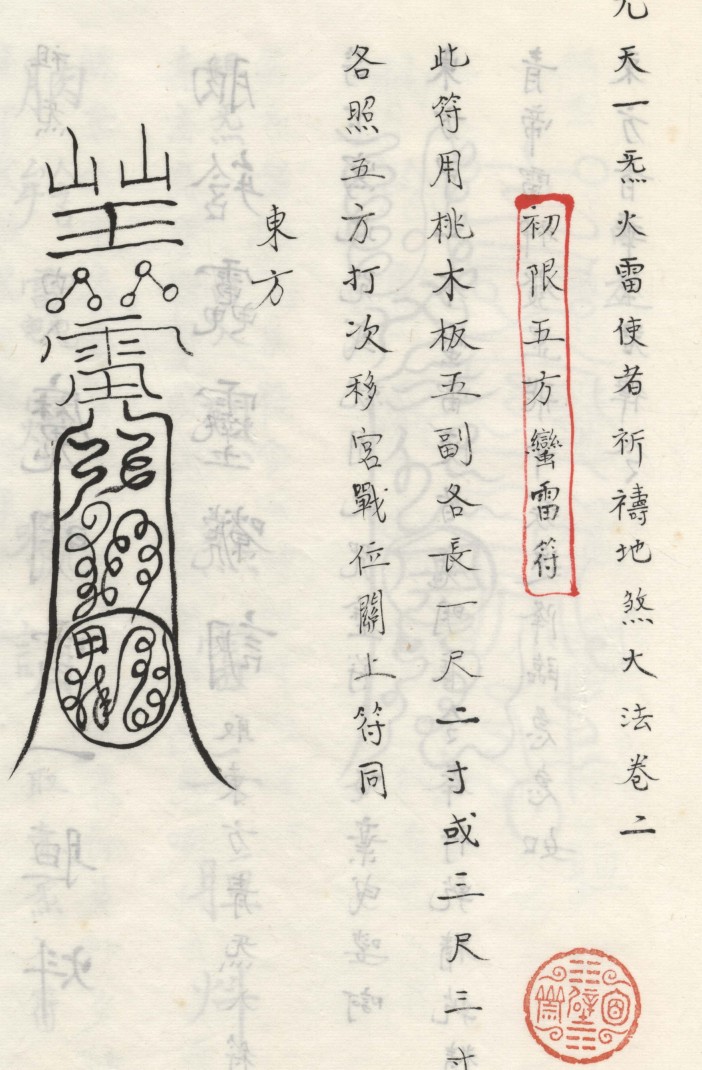 元天一炁火雷使者祈禱地煞大法卷二
初限五方蠻雷符
此符用桃木板五副各長一尺二寸或三尺三寸
各照五方打次移宮戰位關上符同
東方